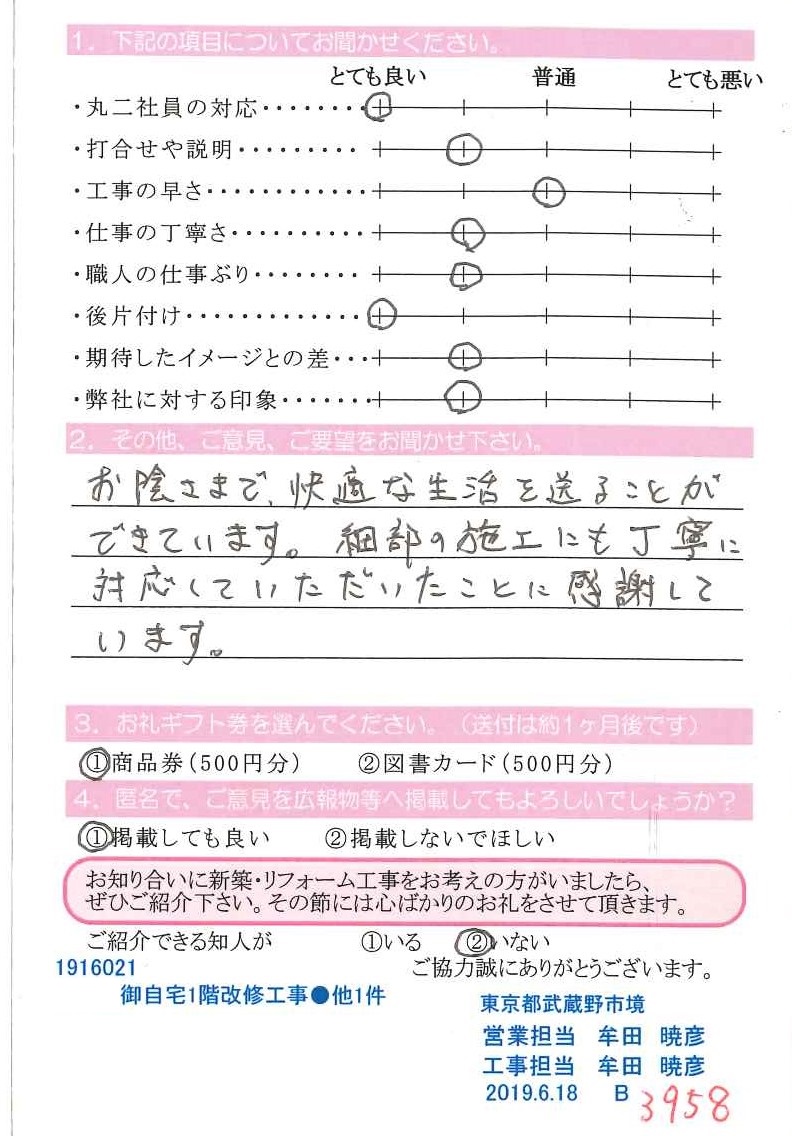 1. 下記の項目についてお聞かせください。
とても良い 普通 とても悪い
・丸二社員の対応・・・・・・・・
・打合せや説明・・・・・・・・・
・工事の早さ・・・・・・・・・・・・
・仕事の丁寧さ・・・・・・・・・・
・職人の仕事ぶり・・・・・・・・
・後片付け・・・・・・・・・・・・・
・期待したイメージとの差・・・
・弊社に対する印象・・・・・・・
2. その他、ご意見、ご要望をお聞かせ下さい。
お陰さまで、快適な生活を送ることが
できています。細部の施工にも丁寧に
対応していただいたことに感謝して
います。
3. お礼ギフト券を選んでください。(送付は約1ヶ月後です)
①商品券(500円分) ②図書カード(500円分)
4. 匿名で、ご意見を広報物等へ掲載してもよろしいでしょうか?
①掲載しても良い ②掲載しないでほしい
お知り合いに新築・リフォーム工事をお考えの方がいましたら、
ぜひご紹介下さい。その節には心ばかりのお礼をさせて頂きます。
ご紹介できる知人が ①いる ②いない
1916021 ご協力誠にありがとうございます。
御自宅1階改修工事●他1件
東京都武蔵野市境
営業担当 牟田 暁彦
工事担当 牟田 暁彦
2019.6.18 B 3958